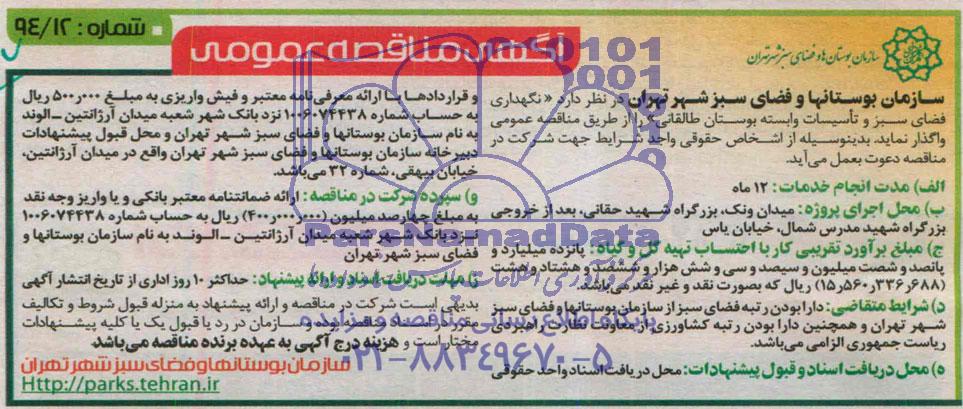 شماره : ۹۴/۱۲
آگهی مناقصه عمومی
سازمان بوستان ها و فضای سبز شهر تهران
سازمان بوستانها و فضای سبز شهر تهران در نظر دارد «نگهداری
فضای سبز و تأسیسات وابسته بوستان طالقانی» را از طریق مناقصه عمومی
واگذار نماید. بدینوسیله از اشخاص حقوقی واجد شرایط جهت شرکت در
مناقصه دعوت بعمل می‌آید.
الف) مدت انجام خدمات : ۱۲ ماه
ب) محل اجرای پروژه : میدان ونک، بزرگراه شهید حقانی، بعد از خروجی
بزرگراه شهید مدرس شمال، خیابان یاس
ج) مبلغ برآورد تقریبی کار با احتساب تهیه گل و گیاه : پانزده میلیارد و
پانصد و شصت میلیون و سیصد و سی و شش هزار و ششصد و هشتاد و هشت
(۱۵٫۵۶۰٫۳۳۶٫۶۸۸) ریال که بصورت نقد و غیر نقد می‌باشد.
د) شرایط متقاضی : دارا بودن رتبه فضای سبز از سازمان بوستانها و فضای سبز
شهر تهران و همچنین دارا بودن رتبه کشاورزی از معاونت نظارت راهبردی
ریاست جمهوری الزامی می‌باشد.
ه) محل دریافت اسناد و قبول پیشنهادات : محل دریافت اسناد واحد حقوقی
و قراردادها با ارائه معرفی‌نامه معتبر و فیش واریزی به مبلغ ۵۰۰٫۰۰۰ ریال
به حساب شماره ۱۰۰۶۰۷۴۴۳۸ نزد بانک شهر شعبه میدان آرژانتین ـ الوند
به نام سازمان بوستانها و فضای سبز شهر تهران و محل قبول پیشنهادات
دبیرخانه سازمان بوستانها و فضای سبز شهر تهران واقع در میدان آرژانتین،
خیابان بیهقی، شماره ۳۲ می‌باشد.
و) سپرده شرکت در مناقصه : ارائه ضمانتنامه معتبر بانکی و یا واریز وجه نقد
به مبلغ چهارصد میلیون (۴۰۰٫۰۰۰٫۰۰۰) ریال به حساب شماره ۱۰۰۶۰۷۴۴۳۸
نزد بانک شهر شعبه میدان آرژانتین ـ الوند به نام سازمان بوستانها و
فضای سبز شهر تهران
ز) مهلت دریافت اسناد و ارائه پیشنهاد : حداکثر ۱۰ روز اداری از تاریخ انتشار آگهی
بدیهی است شرکت در مناقصه و ارائه پیشنهاد به منزله قبول شروط و تکالیف
مقرر در اسناد مناقصه بوده و سازمان در رد یا قبول یک یا کلیه پیشنهادات
مختار است و هزینه درج آگهی به عهده برنده مناقصه می‌باشد.
سازمان بوستانها و فضای سبز شهر تهران
Http://parks.tehran.ir
ParsNamadData
۰۲۱-۸۸۳۴۹۶۷۰-۵